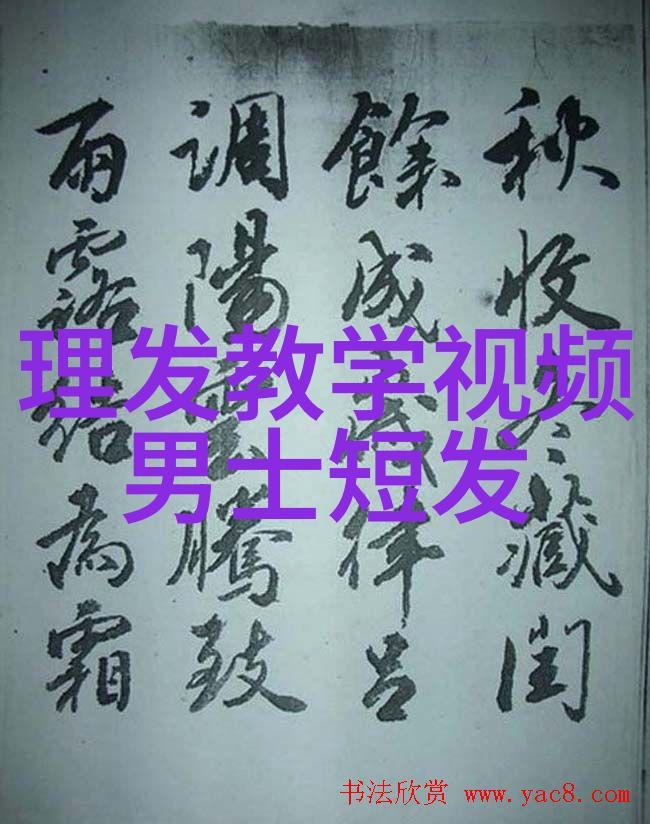 秋收冬藏閏
餘成歲律呂
調陽雲騰致
雨露結為霜
理发教学视频
男士短发
书法欣赏 www.yac8.com